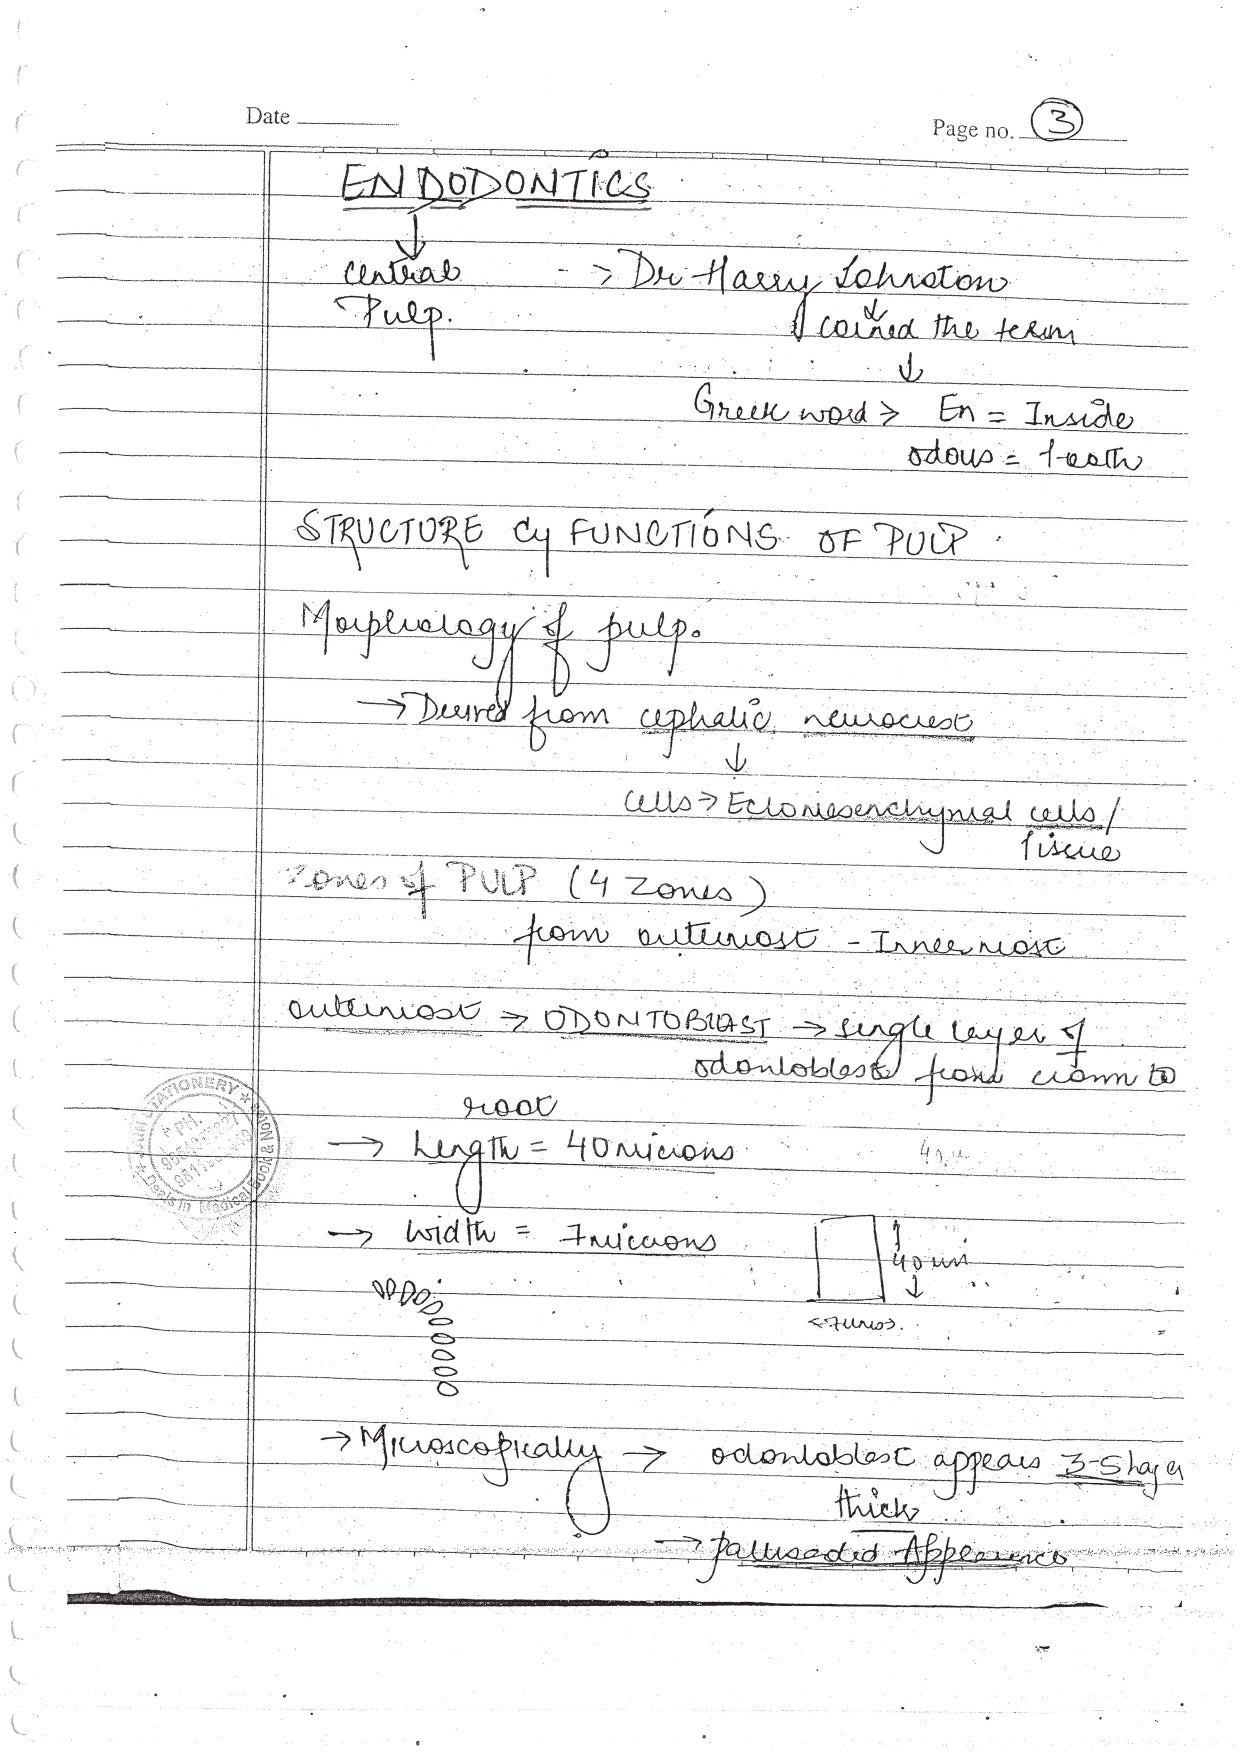 Date
Page no. 3
ENDODONTICS
↓
central -> Dr Harry Johnston
Pulp. ↓ coined the term
↓
Greek word > En = Inside
odous = teeth
STRUCTURE & FUNCTIONS OF PULP
Morphology of pulp.
→ Derived from cephalic neurocrest
↓
cells → Ectomesenchymal cells /
Tissue
Zones of PULP (4 Zones)
from outermost - Innermost
outermost → ODONTOBLAST → single layer of
odontoblast from crown to
root
→ Length = 40 microns
→ width = 7 microns
40 um
→ Microscopically → odontoblast appears 3-5 layer
thick
→ pallisaded Appearence
STATIONERY
PH.
Deals in Medical Book &